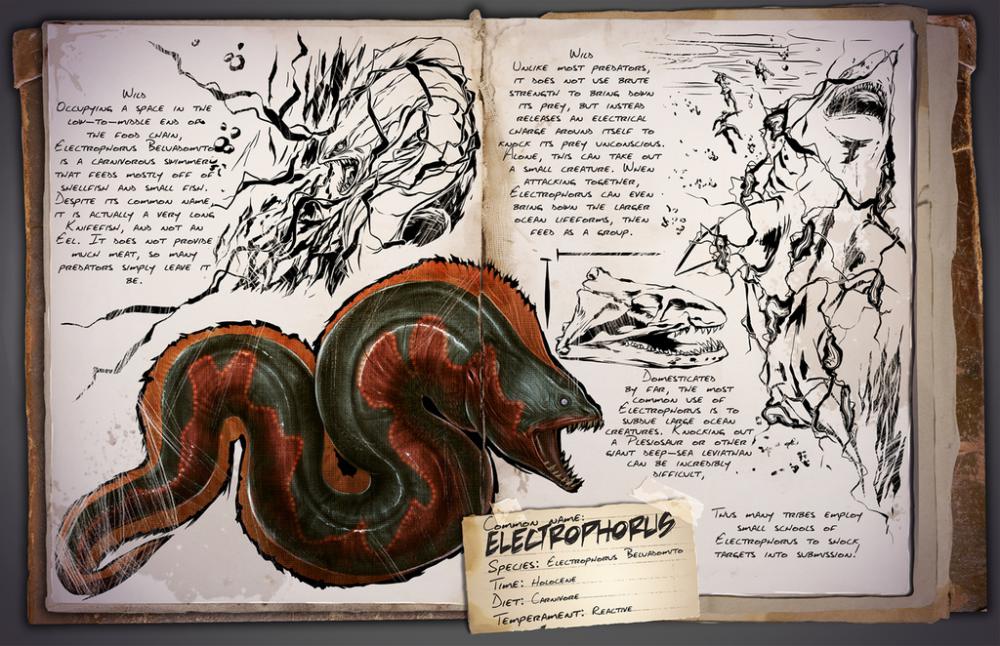 Wild
Occupying a space in the
low-to-middle end of
the food chain,
Electrophorus Beluadomito
is a carnivorous swimmer
that feeds mostly off of
shellfish and small fish.
Despite its common name,
it is actually a very long
Knifefish, and not an
Eel. It does not provide
much meat, so many
predators simply leave it
be.
Wild
Unlike most predators,
it does not use brute
strength to bring down
its prey, but instead
releases an electrical
charge around itself to
knock its prey unconscious.
Alone, this can take out
a small creature. When
attacking together,
Electrophorus can even
bring down the larger
ocean lifeforms, then
feed as a group.
Domesticated
By far, the most
common use of
Electrophorus is to
subdue large ocean
creatures. Knocking out
a Plesiosaur or other
giant deep-sea leviathan
can be incredibly
difficult,
Thus many tribes employ
small schools of
Electrophorus to shock
targets into submission!
Common Name:
ELECTROPHORUS
Species: Electrophorus Beluadomito
Time: Holocene
Diet: Carnivore
Temperament: Reactive